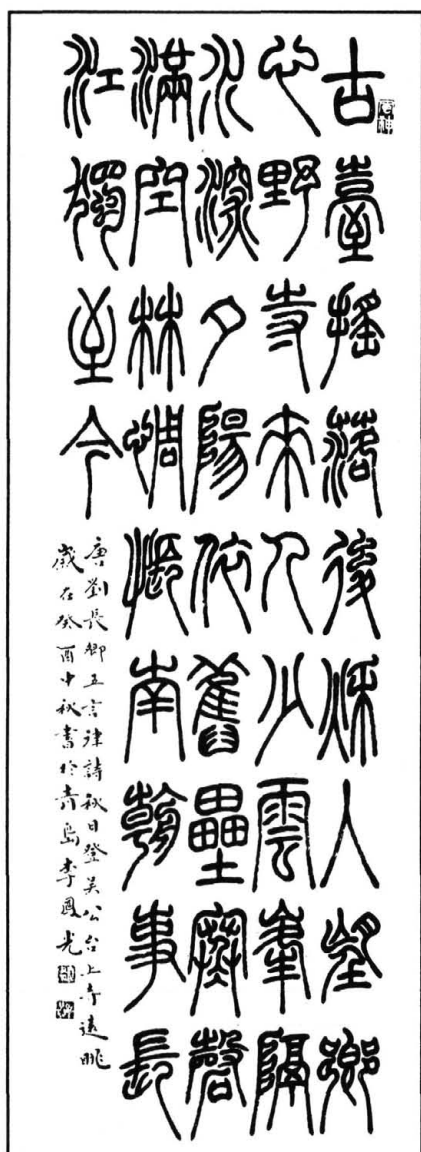 古臺搖落後秋入望鄉
心野寺來人少雲峯隔
水深夕陽依舊壘寒磬
滿空林惆悵南朝事長
江獨至今
唐劉長卿五言律詩秋日登吳公台上寺遠眺
歲在癸酉中秋書於青島李鳳光